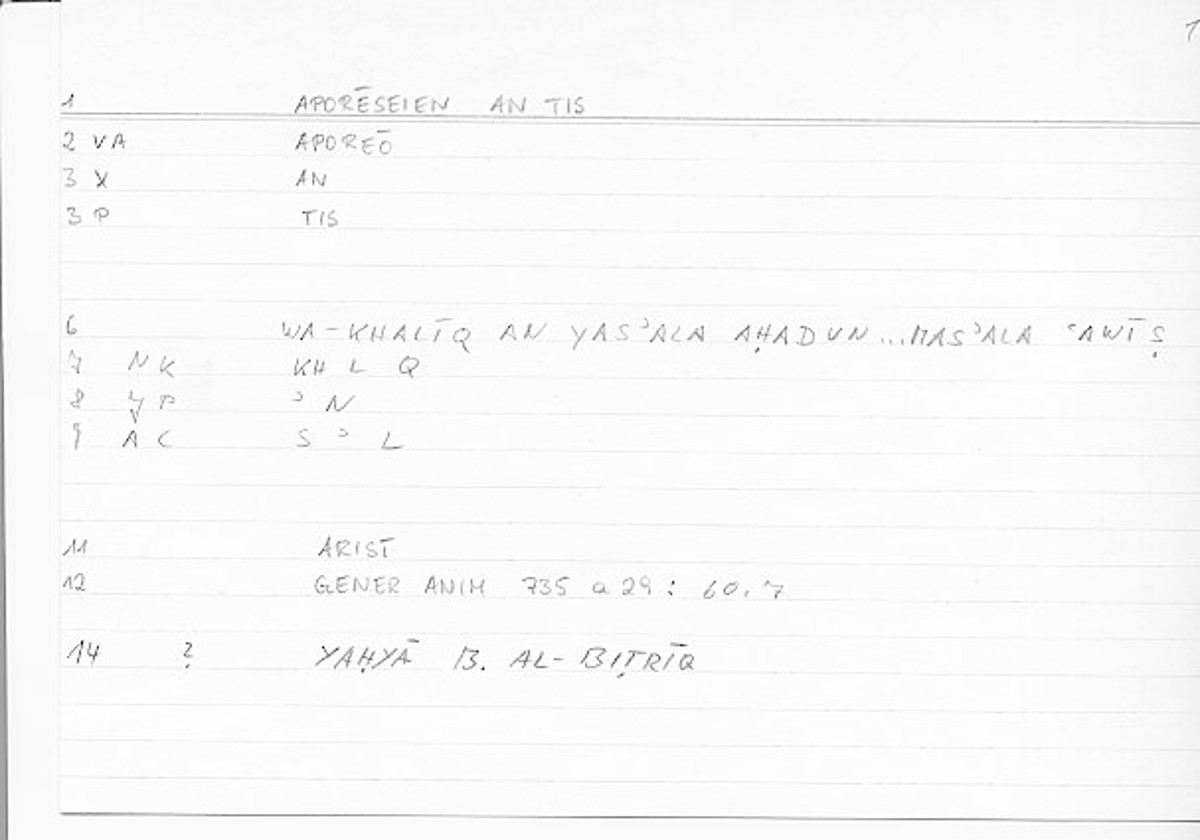 1
1 APORĒSEIEN AN TIS
2 VA APOREŌ
3 X AN
3 P TIS
6 WA-KHALĪQ AN YASʾALA AḤADUN...MASʾALA ʿAWĪṢ
7 NK KH L Q
8 YP ʾ N
9 AC S ʾ L
11 ARIST
12 GENER ANIM 735 a 29 : 60,7
14 ? YAḤYĀ B. AL-BIṬRĪQ